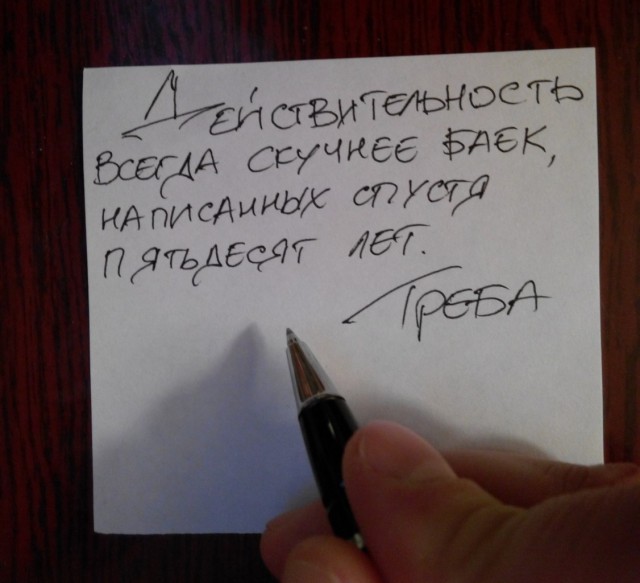 Действительность
всегда скучнее баек,
написанных спустя
пятьдесят лет.
Треба